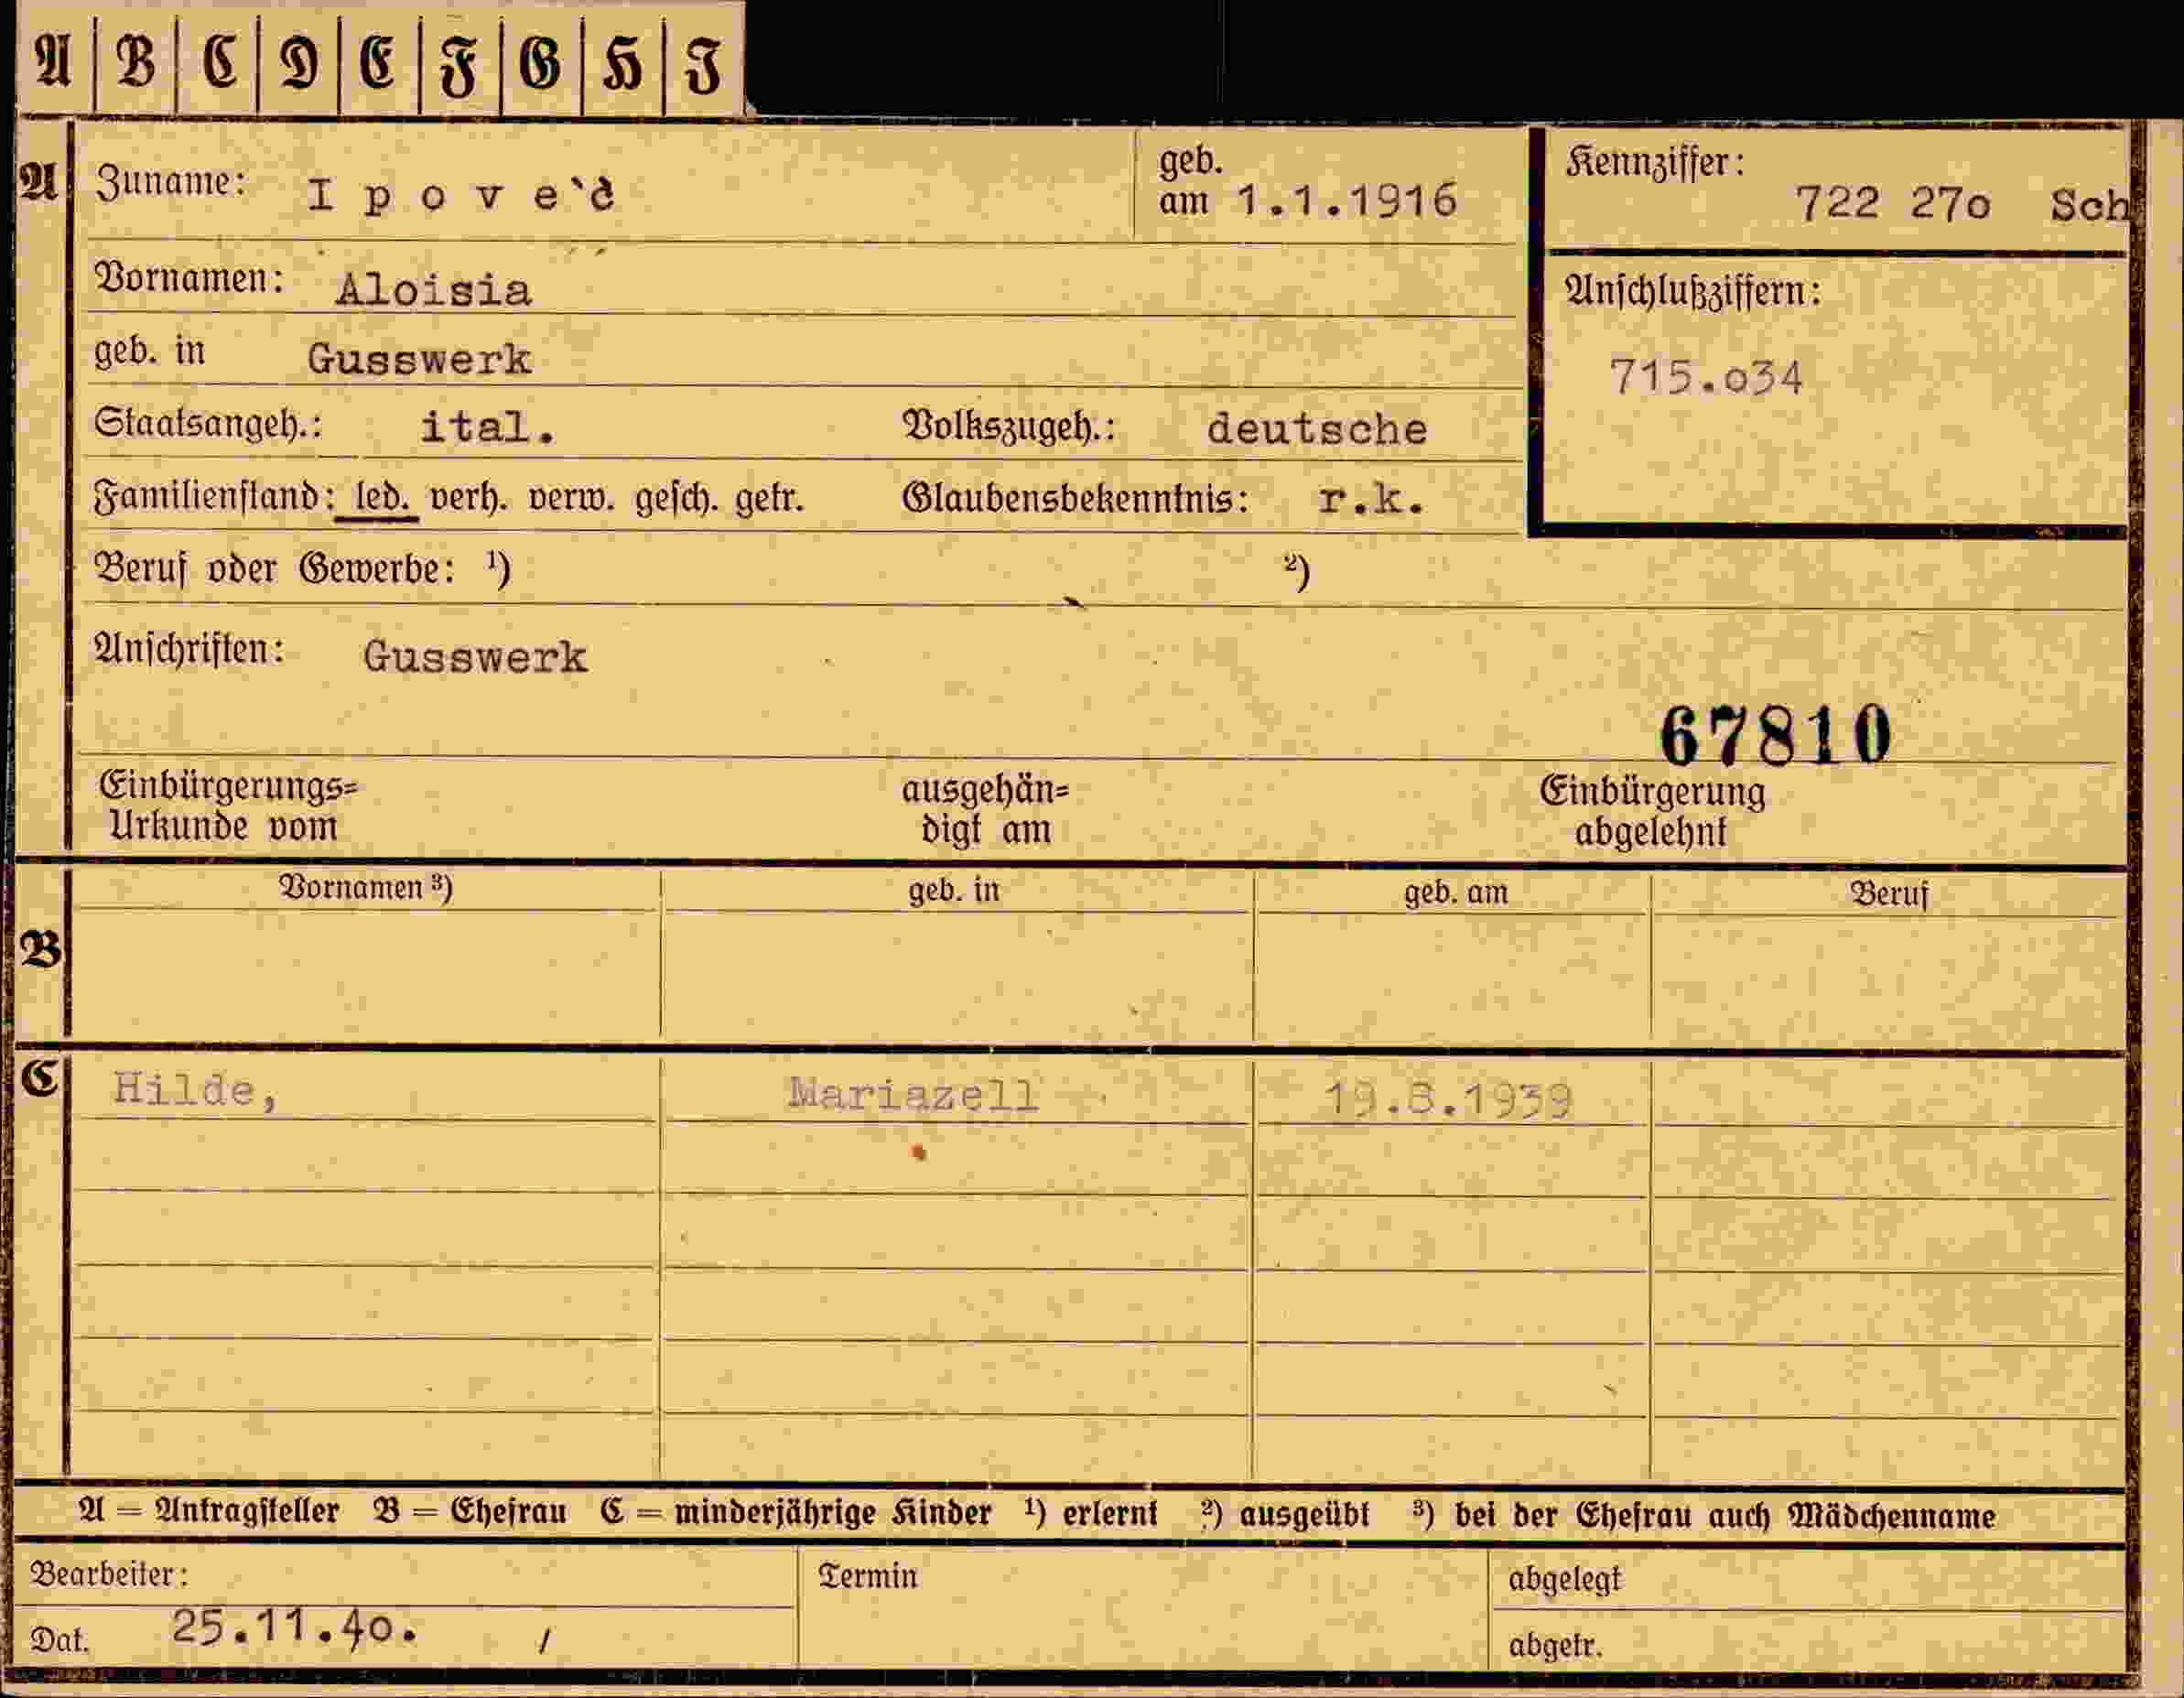 A B C D E F G H I
A
Zuname: Ipove`d
geb. am 1.1.1916
Kennziffer: 722 27o Sch
Vornamen: Aloisia
Anschlußziffern:
geb. in Gusswerk
715.o34
Staatsangeh.: ital. Volkszugeh.: deutsche
Familienstand: led. verh. verw. gesch. getr. Glaubensbekenntnis: r.k.
Beruf oder Gewerbe: ¹) ²)
Anschriften: Gusswerk
67810
Einbürgerungs= ausgehän= Einbürgerung
Urkunde vom digt am abgelehnt
Vornamen ³) geb. in geb. am Beruf
B
C Hilde, Mariazell 19.8.1939
A = Antragsteller B = Ehefrau C = minderjährige Kinder ¹) erlernt ²) ausgeübt ³) bei der Ehefrau auch Mädchenname
Bearbeiter: Termin abgelegt
Dat. 25.11.4o. / abgetr.